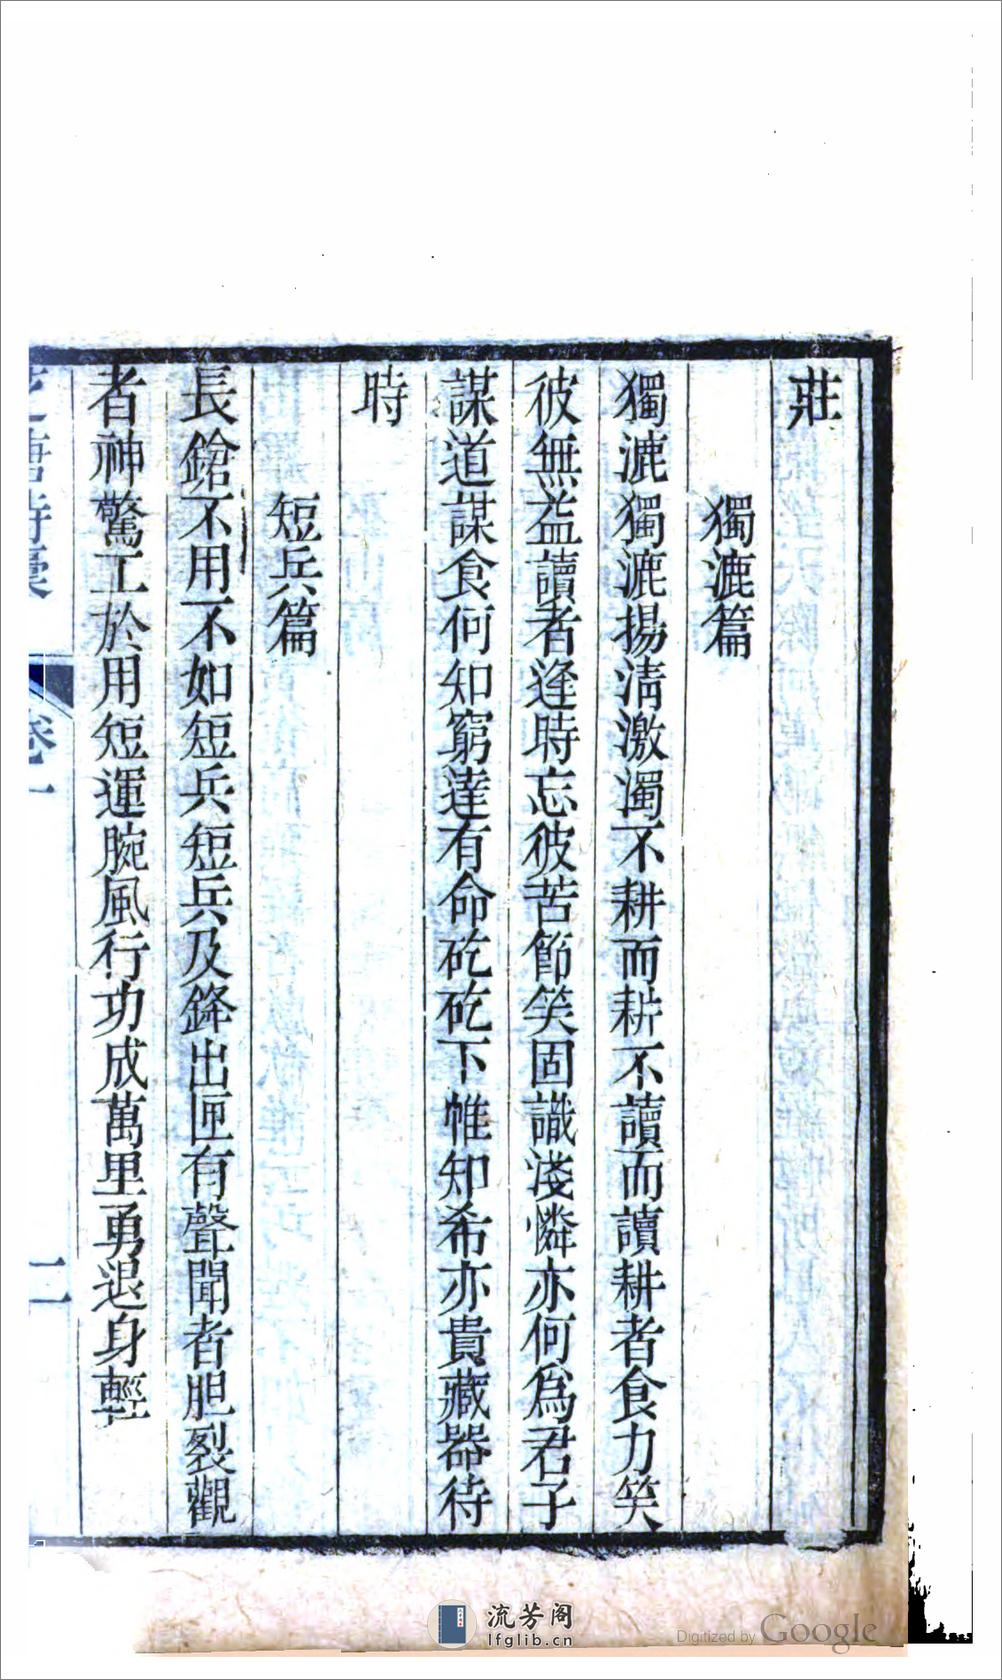 莊
獨漉篇
獨漉獨漉揚清激濁不耕而耕不讀而讀耕者食力笑
彼無益讀者逢時忘彼苦節笑固識淺憐亦何爲君子
謀道謀食何知窮達有命矻矻下帷知希亦貴藏器待
時
短兵篇
長鎗不用不如短兵短兵及鋒出匣有聲聞者胆裂觀
者神驚工於用短運腕風行功成萬里勇退身輕
卷一
二
流芳阁
lfglib.cn
Digitized by Google